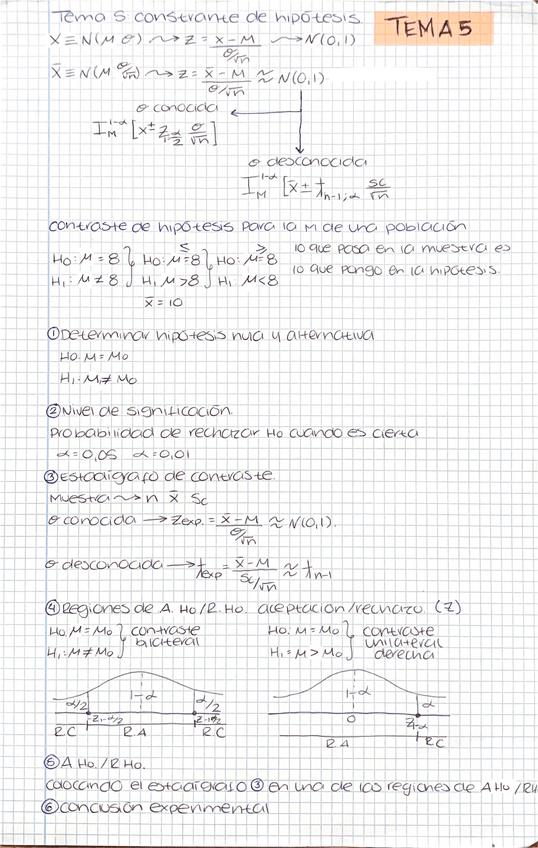 Tema 5 constrante de hipótesis
TEMA 5
X ≡ N(M σ) ⤳ z = x - M / σ/√n ⤳ N(0,1)
X̄ ≡ N(M σ/√n) ⤳ z = x̄ - M / σ/√n ≈ N(0,1)
σ conocida
I_M^{1-α} [x ± z_{1-α/2} σ/√n]
σ desconocida
I_M^{1-α} [x̄ ± t_{n-1;α} sc/√n
contraste de hipótesis para la M de una población
H0: M = 8 } H0: M = 8 } H0: M = 8 lo que pasa en la muestra es
≤ ≥
H1: M ≠ 8 } H1 M > 8 } H1 M < 8 lo que pongo en la hipótesis.
x̄ = 10
① Determinar hipótesis nula y alternativa
H0: M = M0
H1: M ≠ M0
② Nivel de significación
Probabilidad de rechazar H0 cuando es cierta
α = 0,05 α = 0,01
③ Estadigrafo de contraste.
Muestra ⤳ n x̄ Sc
σ conocida → Zexp. = x̄ - M / σ/√n ≈ N(0,1).
σ desconocida → t exp = x̄ - M / Sc/√n ≈ t n-1
④ Regiones de A. H0 / R. H0. aceptación/rechazo (Z)
H0: M = M0 } contraste
H1: M ≠ M0 } bilateral
H0: M = M0 } contraste
H1 = M > M0 } unilateral
derecha
α/2 1-α α/2
-Z1-α/2 Z1-α/2
RC RA RC
1-α α
0 Z1-α
RA RC
⑤ A H0. / R H0.
colocando el estadigrafo ③ en una de las regiones de A H0 / RH
⑥ conclusión experimental